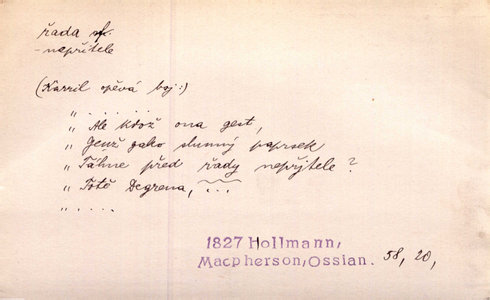 řada
-nepřítele
(Karril opěvá boj:)
„ . . . . . .
„ Ale kdož ona gest,
„ Genž gako slunný paprsek
„ Táhne před řady nepřjtele?
„ Totě Degrena, ...
„ . . . .
1827 Hollmann,
Macpherson, Ossian. 58, 20,